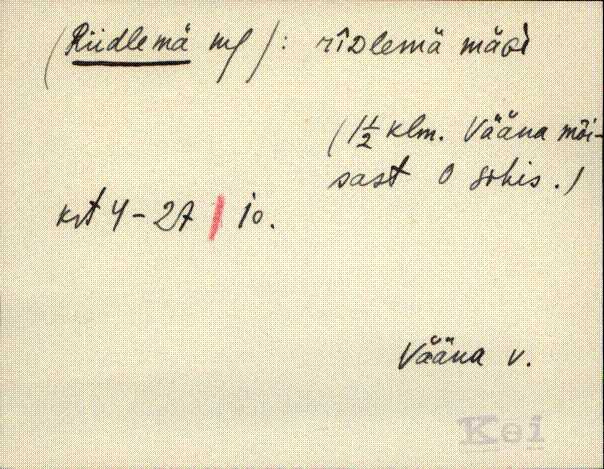 (Riidlemä mg): rīdlemä mäɢi
(1½ klm. Vääna mõi-
sast O sohis.)
krt 4-27 | 10.
Vääna v.
Kei